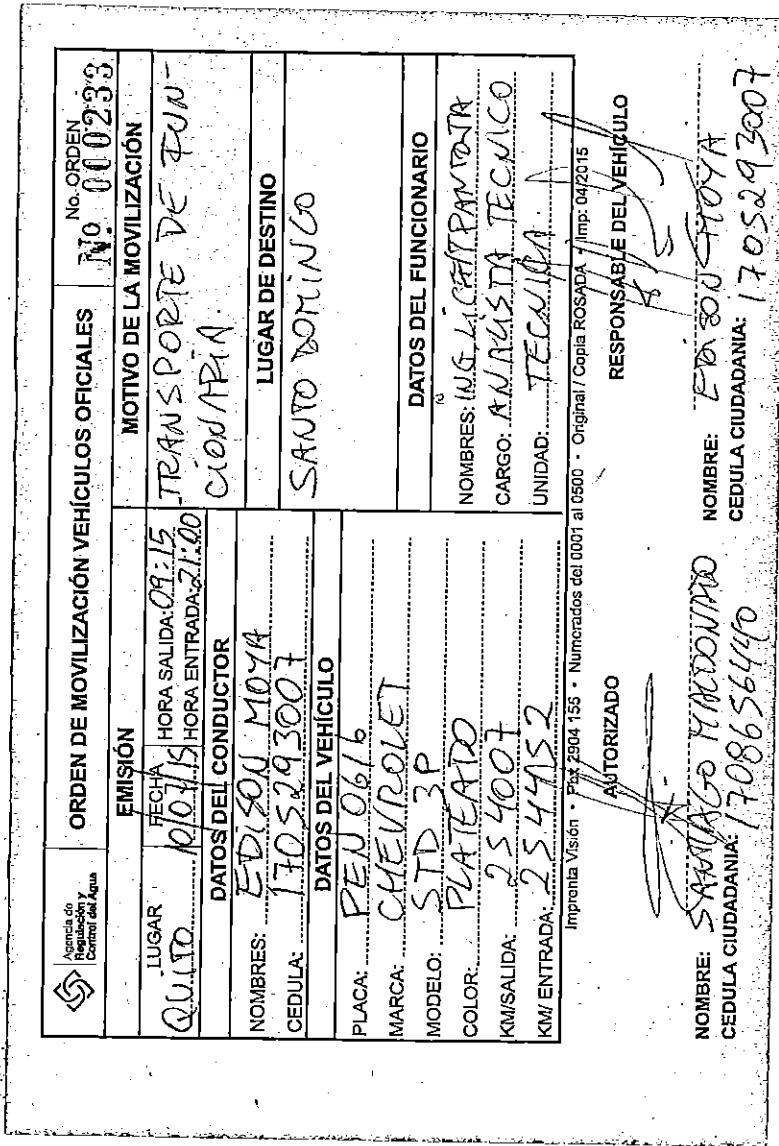 Agencia de
Regulación y
Control del Agua
ORDEN DE MOVILIZACIÓN VEHÍCULOS OFICIALES
No. ORDEN
No. 000233
EMISIÓN
LUGAR
QUITO
FECHA
10/07/15
HORA SALIDA: 09:15
HORA ENTRADA: 21:00
DATOS DEL CONDUCTOR
NOMBRES: EDISON MOYA
CEDULA: 1705293007
DATOS DEL VEHÍCULO
PLACA: PEN 0616
MARCA: CHEVROLET
MODELO: STD 3P
COLOR: PLATEADO
KM/SALIDA: 254007
KM/ ENTRADA: 254452
MOTIVO DE LA MOVILIZACIÓN
TRANSPORTE DE FUN-
CIONARIA.
LUGAR DE DESTINO
SANTO DOMINGO
DATOS DEL FUNCIONARIO
NOMBRES: ING. PANTOJA
CARGO: ANALISTA TECNICO
UNIDAD: TECNICA
Imprenta Visión • 2904 155 • Numerados del 0001 al 0500 • Original / Copia ROSADA - Imp: 04/2015
AUTORIZADO
NOMBRE: SANTIAGO MALDONADO
CEDULA CIUDADANIA: 1708656440
RESPONSABLE DEL VEHÍCULO
NOMBRE: EDISON MOYA
CEDULA CIUDADANIA: 1705293007